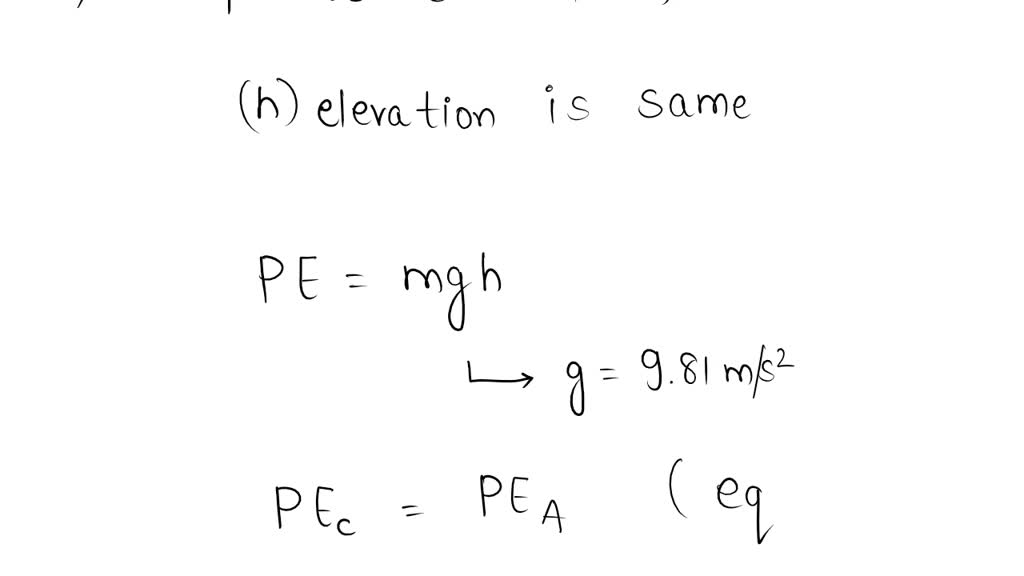 (h) elevation is same
PE = mgh
↳ g = 9.81 m/s²
PE_C = PE_A (eq